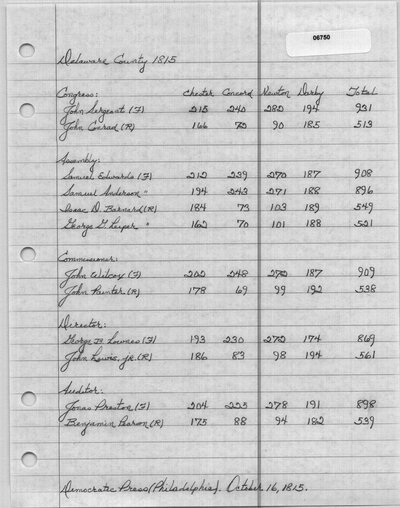 06750
Delaware County 1815
Congress: Chester Concord Newton Darby Total
John Sergeant (F) 215 240 282 194 931
John Conrad (R) 166 72 90 185 513
Assembly:
Samuel Edwards (F) 212 239 270 187 908
Samuel Anderson " 194 243 271 188 896
Isaac D. Barnard (R) 184 73 103 189 549
George G. Leiper " 162 70 101 188 521
Commissioner:
John Wilcox (F) 202 248 272 187 909
John Painter (R) 178 69 99 192 538
Director:
George B. Lownes (F) 193 230 272 174 869
John Lewis, Jr. (R) 186 83 98 194 561
Auditor:
Jonas Preston (F) 204 225 278 191 898
Benjamin Pearson (R) 175 88 94 182 539
Democratic Press (Philadelphia). October 16, 1815.